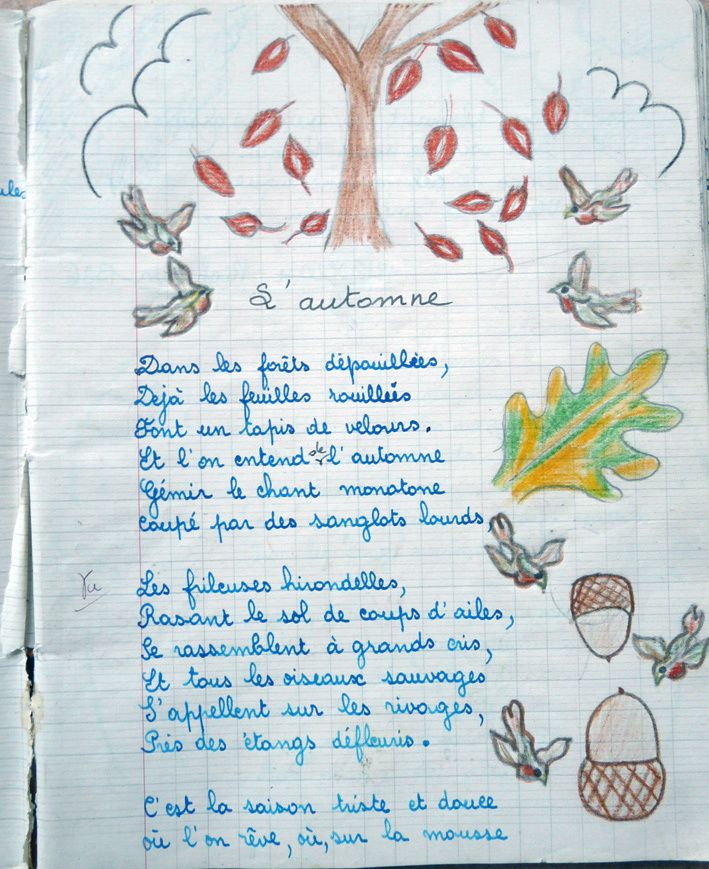 L'automne
Dans les forêts dépouillées,
Dejà les feuilles rouillées
Font un tapis de velours.
Et l'on entend de l'automne
Gémir le chant monotone
coupé par des sanglots lourds,
Vu
Les frileuses hirondelles,
Rasant le sol de coups d'ailes,
Se rassemblent à grands cris,
Et tous les oiseaux sauvages
S'appellent sur les rivages,
Près des étangs défleuris.
C'est la saison triste et douce
où l'on rêve, où, sur la mousse